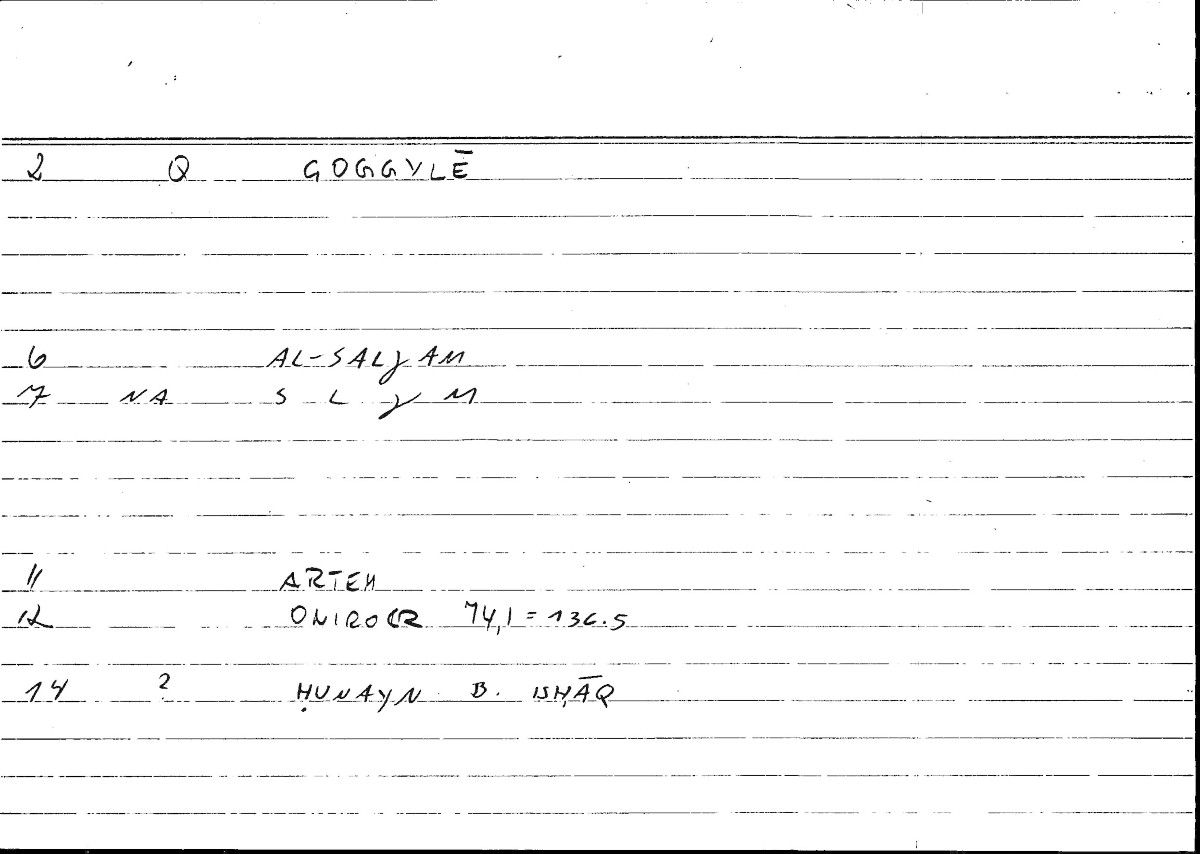 2 Q GOGGYLĒ
6 AL-SALJAM
7 NA S L J M
11 ARTEM
12 ONIROCR 74,1 = 136.5
14 2 ḤUNAYN B. ISḤĀQ